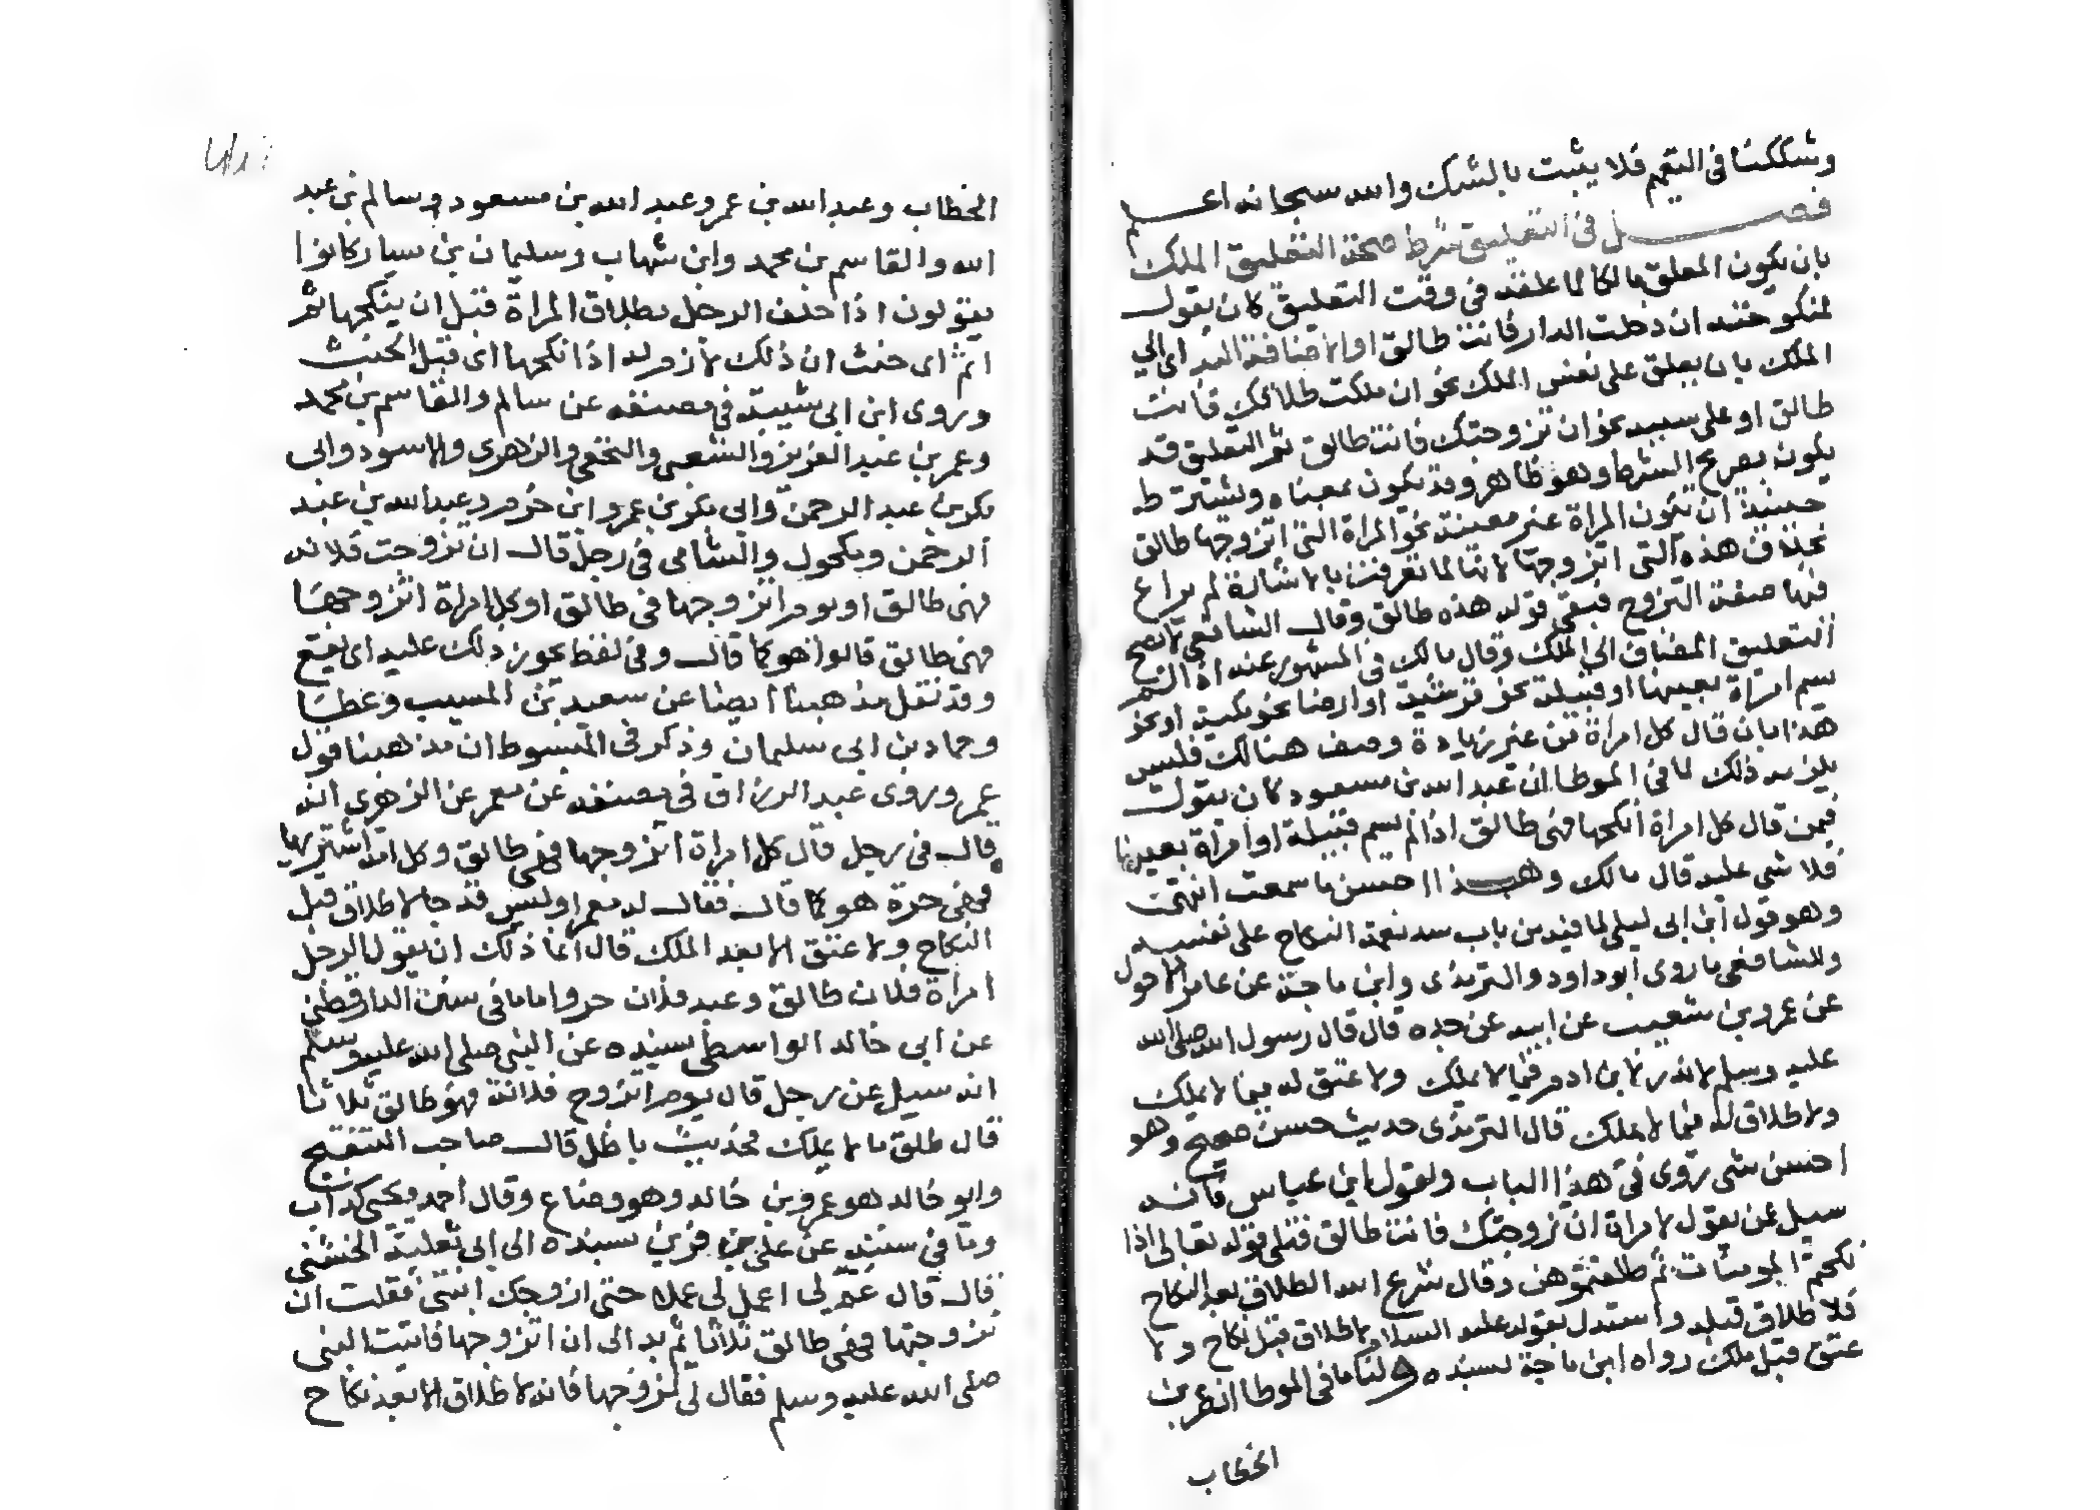 وشككنا في التعميم فلا يثبت بالشك والله سبحانه اعلم
فصل في التعليق شرط صحة التعليق الملك
بان يكون المعلق مالكا لما علقه في وقت التعليق كان يقول
لمنكوحته ان دخلت الدار فانت طالق او الاضافة اليه اي الي
الملك بان يعلق على نفس الملك نحو ان ملكت طلاقك فانت
طالق او على سببه نحو ان تزوجتك فانت طالق ثم التعليق قد
يكون بصريح الشرط وهو ظاهر وقد يكون بمعناه ويشترط
حينئذ ان تكون المراة غير معينة نحو المراة التي اتزوجها طالق
بخلاف هذه التي اتزوجها لانها لما تعرفت بالاشارة لم يراع
فيها صفة التزوج فبقى قوله هذه طالق وقال الشافعي لا يصح
التعليق المضاف الى الملك وقال مالك في المشهور عنه اذا لم
يسم امراة بعينها او قبيلة نحو قرشية او ارضا نحو مكية او نحو
هذا بان قال كل امراة من غير زيادة وصف هنالك فليس
يلزمه ذلك لما في الموطا ان عبد الله بن مسعود كان يقول
فيمن قال كل امراة انكحها فهي طالق اذا لم يسم قبيلة او امراة بعينها
فلا شي عليه قال مالك وهذا احسن ما سمعت انتهى
وهو قول ابن ابي ليلى لما فيه من باب سد نعمة النكاح على نفسه
وللشافعي ما روى ابو داود والترمذي وابن ماجة عن عامر الاحول
عن عمرو بن شعيب عن ابيه عن جده قال قال رسول الله صلى الله
عليه وسلم لا نذر لابن ادم فيما لا يملك ولا عتق له فيما لا يملك
ولا طلاق له فيما لا يملك قال الترمذي حديث حسن صحيح وهو
احسن شي روى في هذا الباب ولقول ابن عباس فانه
سيل عمن يقول لامراة ان تزوجتك فانت طالق فتلى قوله تعالى اذا
نكحتم المومنات ثم طلقتموهن وقال شرع الله الطلاق بعد النكاح
فلا طلاق قبله واستدل بقوله عليه السلام لا طلاق قبل نكاح ولا
عتق قبل ملك رواه ابن ماجة بسنده ولنا ما في الموطا ان عمر بن
الخطاب
الخطاب وعبد الله بن عمر وعبد الله بن مسعود وسالم بن عبد
الله والقاسم بن محمد وابن شهاب وسليمان بن سيار كانوا
يقولون اذا حلف الرجل بطلاق المراة قبل ان ينكحها ثم
اثم اى حنث ان ذلك لازم له اذا نكحها اى قبل الحنث
وروى ابن ابي شيبة في مصنفه عن سالم والقاسم بن محمد
وعمر بن عبد العزيز والشعبي والنخعي والزهري والاسود وابي
بكر بن عبد الرحمن وابي بكر بن عمرو ابن حزم وعبد الله بن عبد
الرحمن ومكحول والشامى في رجل قال ان تزوجت فلانه
فهى طالق او يوم اتزوجها فهى طالق او كل امراة اتزوجها
فهى طالق قالوا هو كما قال وفي لفظ يجوز ذلك عليه اى يقع
وقد نقل مذهبنا ايضا عن سعيد بن المسيب وعطا
وحماد بن ابى سليمان وذكر في المبسوط ان مذهبنا قول
عمر وروى عبد الرزاق في مصنفه عن معمر عن الزهرى انه
قال في رجل قال كل امراة اتزوجها فهى طالق وكل امة اشتريها
فهى حرة هو كما قال فقال له معمر اوليس قد جا لا طلاق قبل
النكاح ولا عتق الا بعد الملك قال انما ذلك ان يقول الرجل
امراة فلان طالق وعبد فلان حر واما ما في سنن الدارقطني
عن ابى خالد الواسطى بسنده عن النبي صلى الله عليه وسلم
انه سيل عن رجل قال يوم اتزوج فلانة فهى طالق ثلاثا
قال طلق ما لا يملك فحديث باطل قال صاحب التنقيح
وابو خالد هو عمرو بن خالد وهو وضاع وقال احمد ويحيى كذاب
وما في سننه عن على بن قرين بسنده الى ابي ثعلبة الخشنى
قال قال عم لي اعمل لي عملا حتى ازوجك ابنتى فقلت ان
تزوجتها فهى طالق ثلاثا ثم بدالى ان اتزوجها فاتيت النبى
صلى الله عليه وسلم فقال لى تزوجها فانه لا طلاق الا بعد نكاح